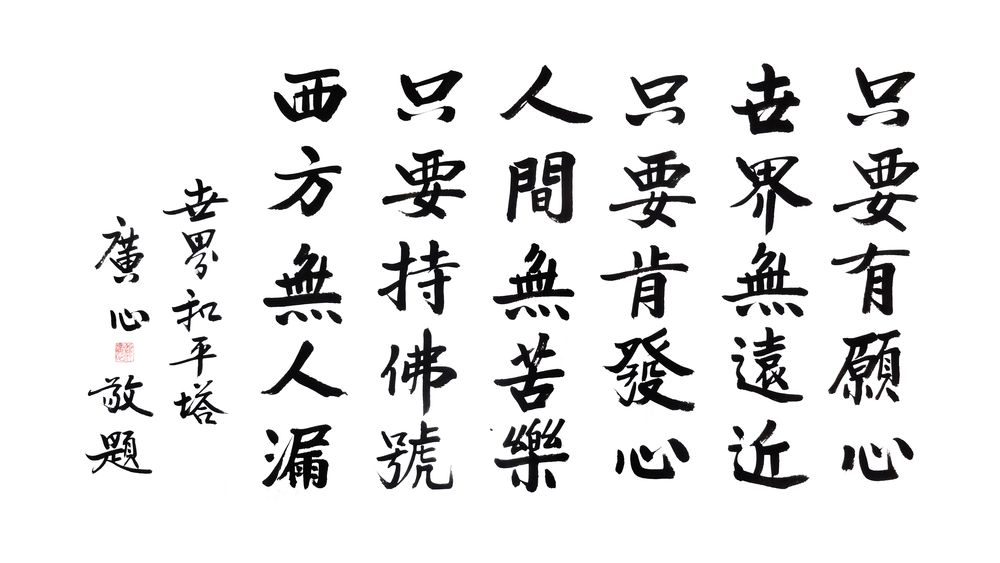 只要有願心
世界無遠近
只要肯發心
人間無苦樂
只要持佛號
西方無人漏
世界和平塔
廣心敬題